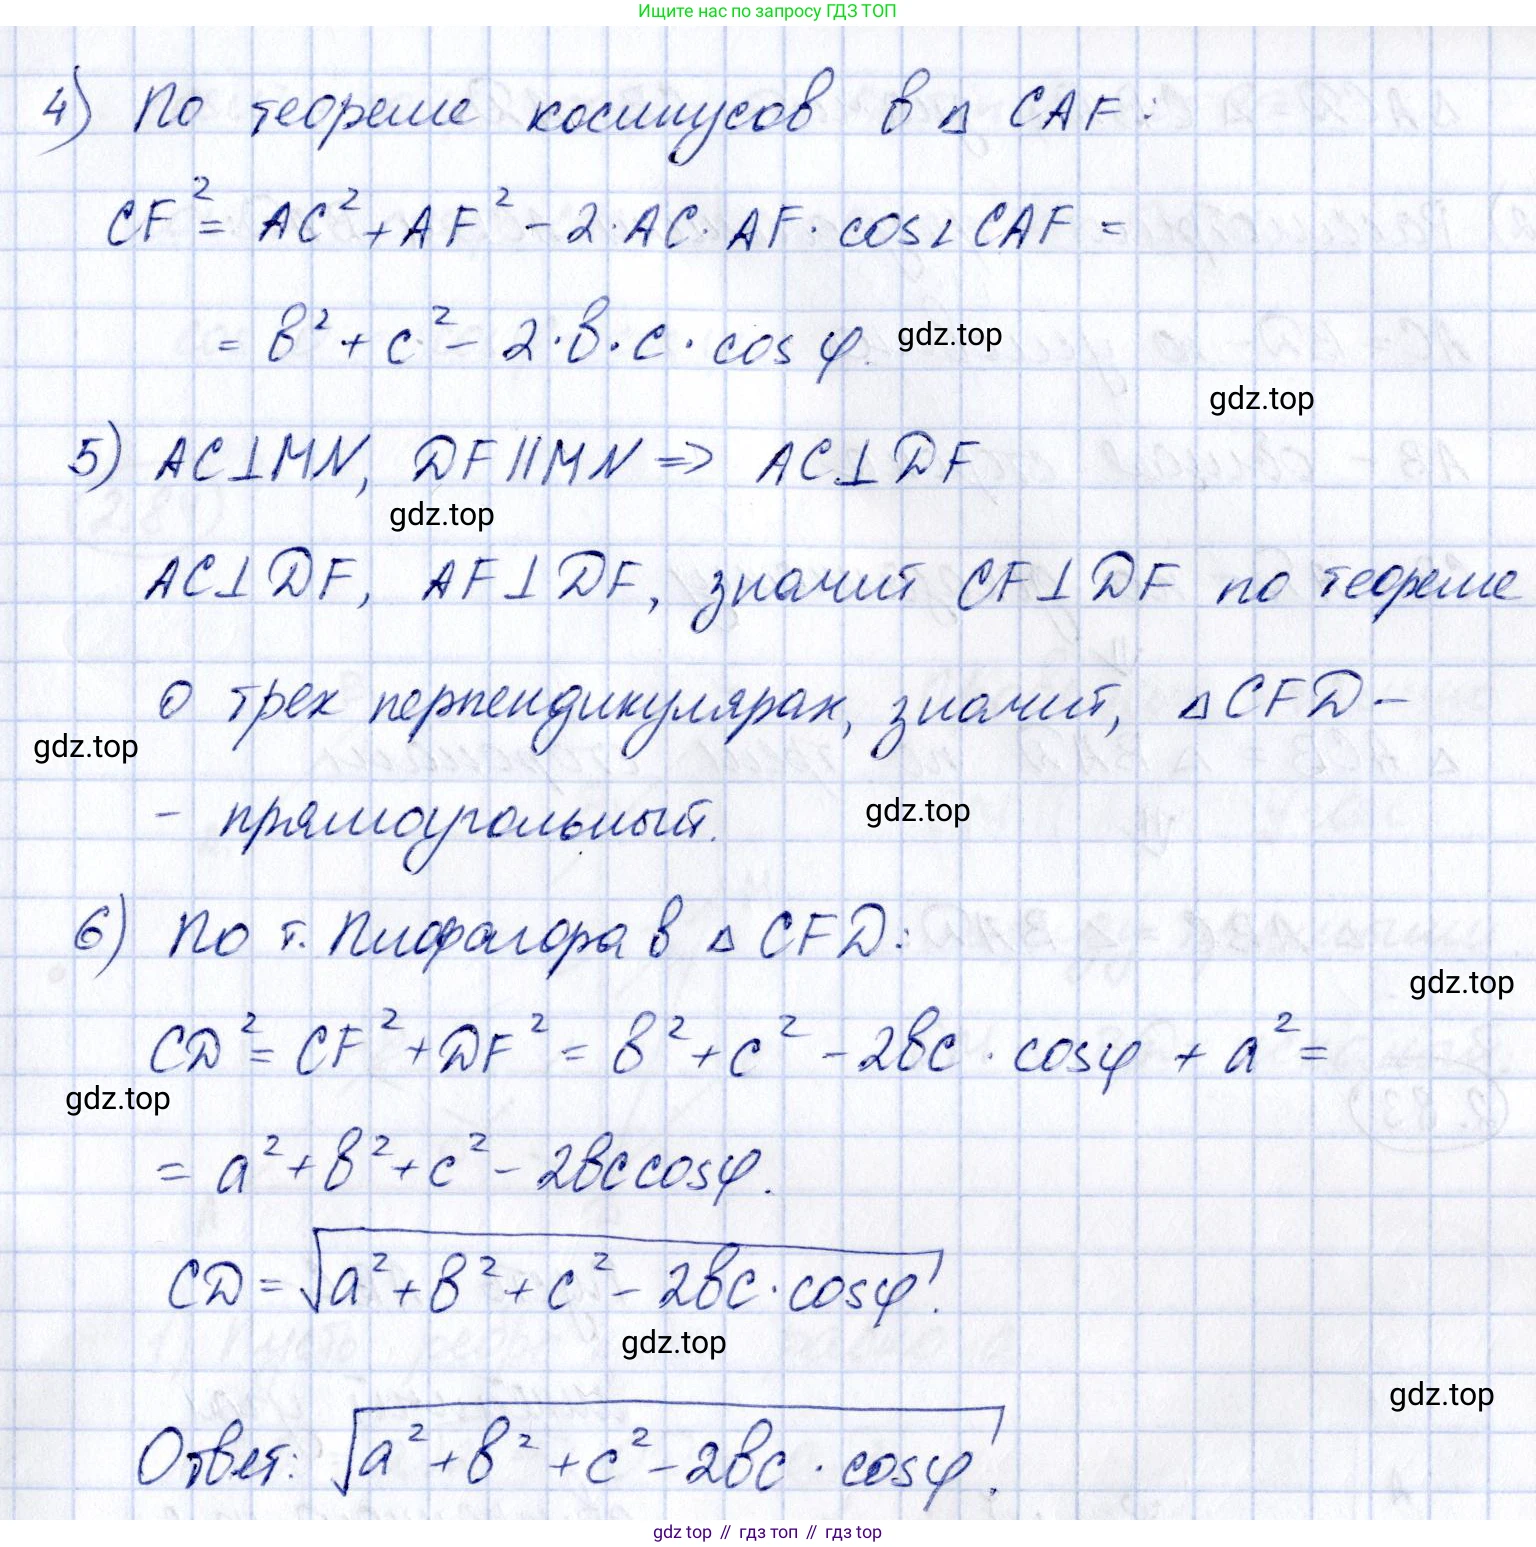 Ищите нас по запросу ГДЗ ТОП
4) По теореме косинусов в △ CAF:
CF² = AC² + AF² - 2·AC·AF·cos∠CAF =
= в² + c² - 2·в·c·cos φ.
gdz.top
gdz.top
5) AC⊥MN, DF||MN => AC⊥DF
gdz.top
AC⊥DF, AF⊥DF, значит CF⊥DF по теореме
о трех перпендикулярах, значит, △CFD -
gdz.top
- прямоугольный.
gdz.top
6) По т. Пифагора в △ CFD:
gdz.top
CD² = CF² + DF² = в² + c² - 2вc · cosφ + a² =
gdz.top
= a² + в² + c² - 2вc cosφ.
CD = √(a² + в² + c² - 2вc·cosφ).
gdz.top
gdz.top
Ответ: √(a² + в² + c² - 2вc · cosφ).
gdz top // гдз топ // гдз top